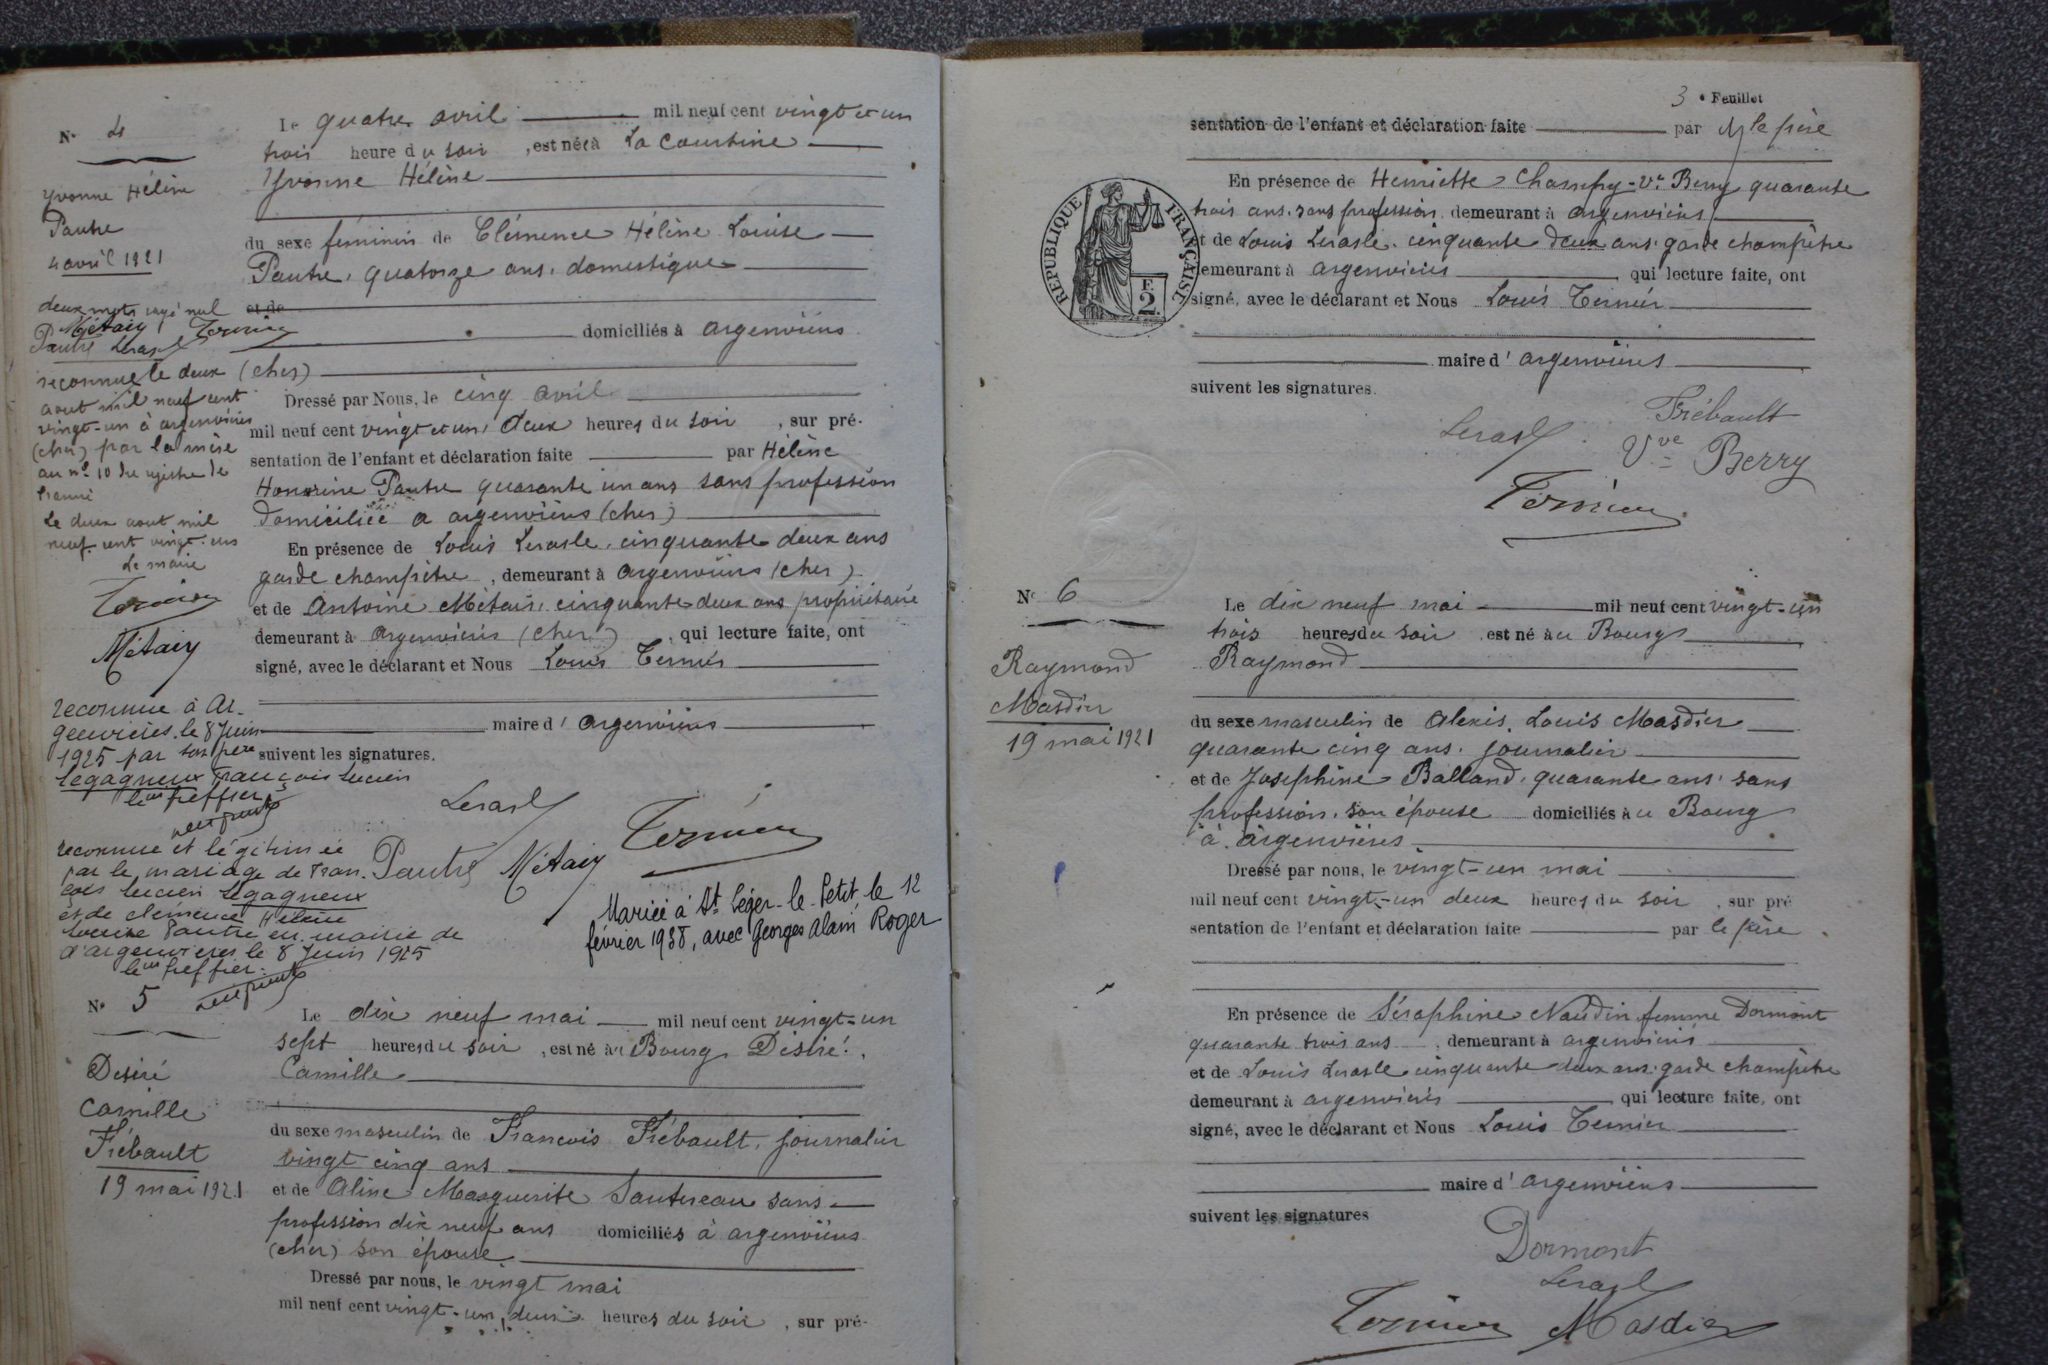 N° 4
Yvonne Hélène
Pautre
4 avril 1921
deux mots rayé nul
Métairy Ternier
Pautre Lerasle
reconnue le deux
aout mil neuf cent
vingt-un à argenvières
(cher) par la mère
au n° 10 du registre de
l'année
Le deux aout mil
neuf cent vingt-un
Le maire
Ternier
Métairy
reconnue à Ar-
genvières le 8 Juin
1925 par son père
Legagneux François Lucien
le greffier
reconnue et légitimée
par le mariage de Fran-
çois Lucien Legagneux
et de clémence Hélène
Louise Pautre en mairie de
d'argenvières le 8 Juin 1925
le greffier
Le quatre avril mil neuf cent vingt et un
trois heure du soir, est née à La Courtine
Yvonne Hélène
du sexe féminin de Clémence Hélène Louise
Pautre, quatorze ans, domestique
et de
domiciliés à argenvières
(cher)
Dressé par Nous, le cinq avril
mil neuf cent vingt et un, deux heures du soir, sur pré-
sentation de l'enfant et déclaration faite par Hélène
Honorine Pautre quarante un ans sans profession
domiciliée a argenvières (cher)
En présence de Louis Lerasle, cinquante deux ans
garde champêtre, demeurant à argenvières (cher)
et de Antoine Métairy, cinquante deux ans propriétaire
demeurant à argenvières (cher), qui lecture faite, ont
signé, avec le déclarant et Nous Louis Ternier
maire d'argenvières
suivent les signatures.
Lerasle
Ternier
Pautre Métairy
Mariée à St Léger-le-Petit, le 12
février 1938, avec Georges Alain Roger
N° 5
Desiré
Camille
Frébault
19 mai 1921
Le dix neuf mai mil neuf cent vingt-un
sept heures du soir, est né au Bourg Désiré,
Camille
du sexe masculin de François Frébault, journalier
vingt cinq ans
et de Aline Marguerite Sautereau sans
profession dix neuf ans domiciliés à argenvières
(cher) son épouse
Dressé par nous, le vingt mai
mil neuf cent vingt-un, deux heures du soir, sur pré-
3e Feuillet
sentation de l'enfant et déclaration faite par le père
RÉPUBLIQUE FRANÇAISE
F.
2.
En présence de Henriette Champy-Ve Berry quarante
trois ans, sans profession, demeurant à argenvières
et de Louis Lerasle, cinquante deux ans, garde champêtre
demeurant à argenvières qui lecture faite, ont
signé, avec le déclarant et Nous Louis Ternier
maire d'argenvières
suivent les signatures.
Lerasle Frébault
Vve Berry
Ternier
N° 6
Raymond
Masdier
19 mai 1921
Le dix neuf mai mil neuf cent vingt-un
trois heures du soir est né au Bourg
Raymond
du sexe masculin de Alexis Louis Masdier
quarante cinq ans, journalier
et de Joséphine Balland, quarante ans, sans
profession, son épouse domiciliés au Bourg
à argenvières
Dressé par nous, le vingt-un mai
mil neuf cent vingt-un deux heures du soir, sur pré
sentation de l'enfant et déclaration faite par le père
En présence de Séraphine Naudin femme Dormont
quarante trois ans, demeurant à argenvières
et de Louis Lerasle cinquante deux ans, garde champêtre
demeurant à argenvières qui lecture faite, ont
signé, avec le déclarant et Nous Louis Ternier
maire d'argenvières
suivent les signatures
Dormont
Lerasle
Ternier Masdier